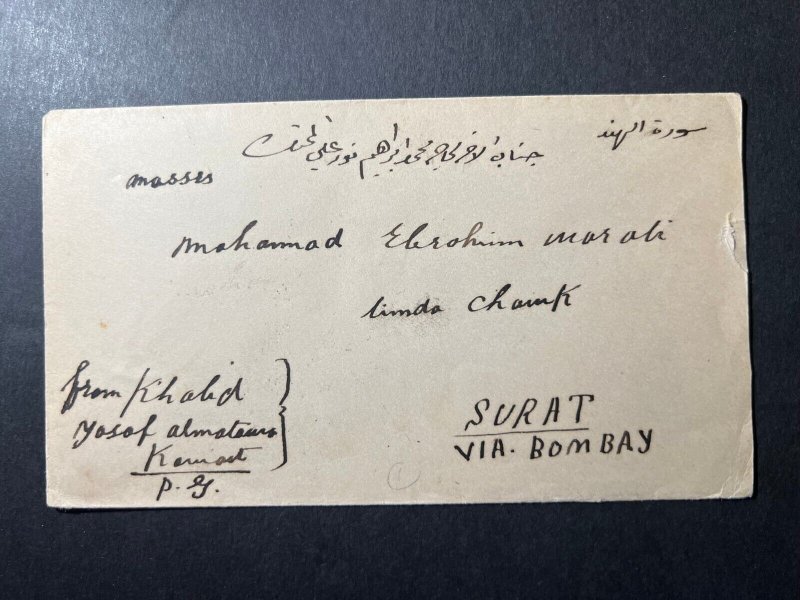 سورة الهند
جناب الاخ محمد ابراهيم نور علي
masses
mohammad Ebrohim morali
limda chowk
from Khalid
yosof almatawa
Kowait
P. G.
SURAT
VIA. BOMBAY